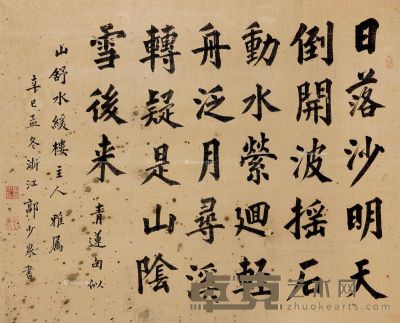 日落沙明天
倒開波摇石
動水縈迴輕
舟泛月尋溪
轉疑是山陰
雪後来
青蓮句似
山舒水緩樓主人雅屬
辛巳孟冬浙江郭少泉書
卓克艺术网
zhuokearts.com